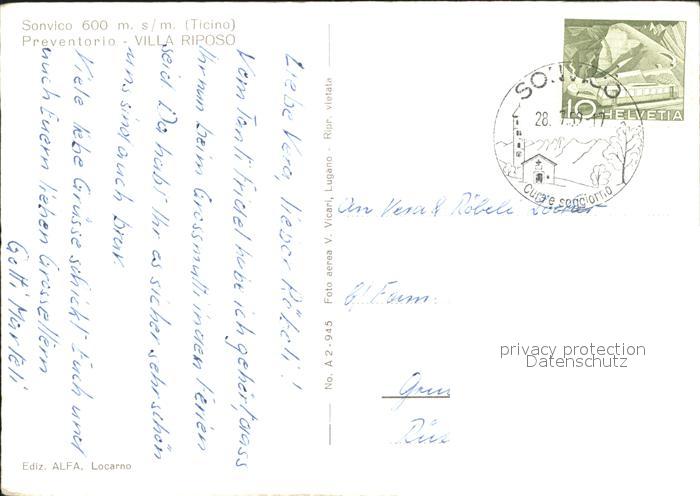 Sonvico 600 m. s/m. (Ticino)
Preventorio - VILLA RIPOSO
Liebe Vera, lieber Röbeli!
Vom Tanti Fridel habe ich gehört, dass
Ihr nun beim Grossmutti in den Ferien
seid. Da habt Ihr es sicher sehr schön
uns sind auch brav.
Viele liebe Grüsse schickt Euch und
auch Euern lieben Grosseltern
Gotti Marteli
Ediz. ALFA, Locarno
No. A 2-945 Foto aerea V. Vicari, Lugano - Ripr. vietata
SONVICO
28. 7.59-17
Cura e soggiorno
10 HELVETIA
An Vera & Röbeli
b/ Fam.
privacy protection
Datenschutz